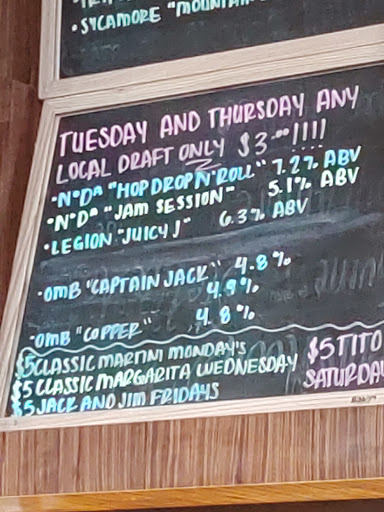 • SYCAMORE "MOUNTAIN
TUESDAY AND THURSDAY ANY
LOCAL DRAFT ONLY $3.00 !!!!
• NODA "HOP DROP N' ROLL" 7.2% ABV
• NODA "JAM SESSION" 5.1% ABV
• LEGION "JUICY J" 6.3% ABV
• OMB "CAPTAIN JACK" 4.8%
4.9%
• OMB "COPPER" 4.8%
$5 CLASSIC MARTINI MONDAY'S
$5 CLASSIC MARGARITA WEDNESDAY
$5 JACK AND JIM FRIDAYS
$5 TITO
SATURDA